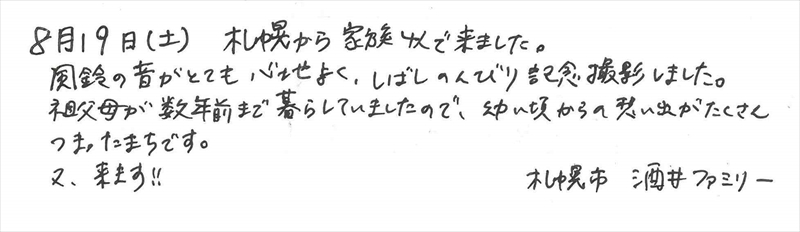 8月19日(土) 札幌から家族4人で来ました。
風鈴の音がとても心地よく、しばしのんびり記念撮影しました。
祖父母が数年前まで暮らしていましたので、幼い頃からの想い出がたくさん
つまったまちです。
又、来ます!!
札幌市 酒井ファミリー